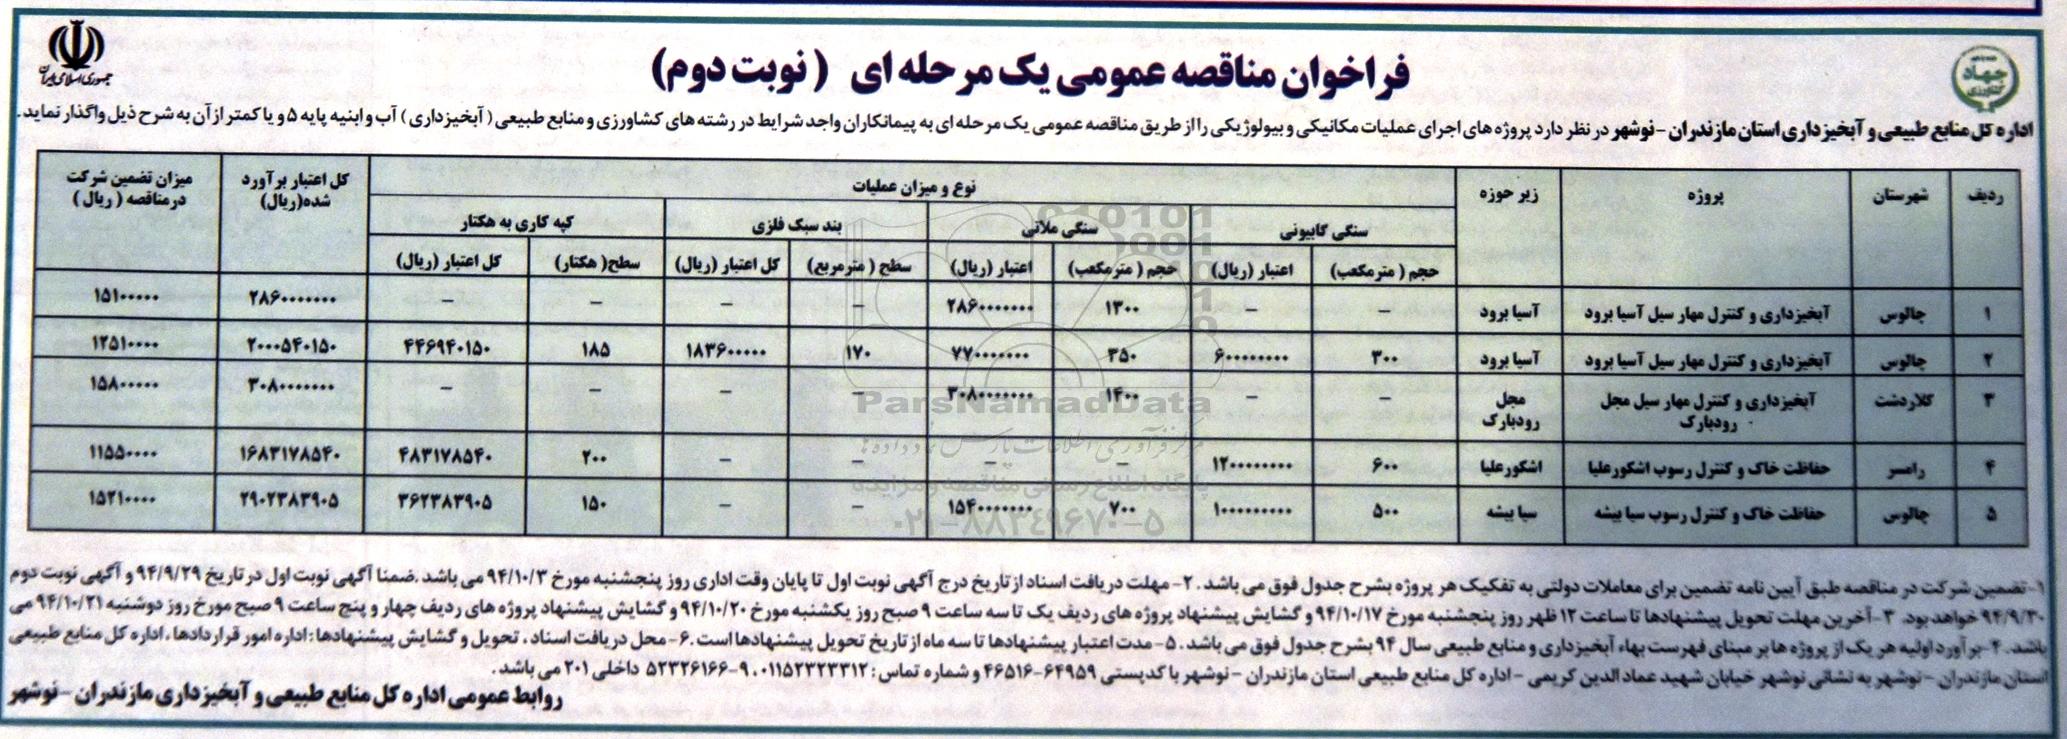 جمهوری اسلامی ایران
جهاد کشاورزی
فراخوان مناقصه عمومی یک مرحله ای (نوبت دوم)
اداره کل منابع طبیعی و آبخیزداری استان مازندران - نوشهر در نظر دارد پروژه های اجرای عملیات مکانیکی و بیولوژیکی را از طریق مناقصه عمومی یک مرحله ای به پیمانکاران واجد شرایط در رشته های کشاورزی و منابع طبیعی (آبخیزداری) آب و ابنیه پایه ۵ و یا کمتر از آن به شرح ذیل واگذار نماید.
ردیف شهرستان پروژه زیر حوزه نوع و میزان عملیات کل اعتبار برآورد شده(ریال) میزان تضمین شرکت در مناقصه (ریال)
سنگی گابیونی سنگی ملاتی بند سبک فلزی کپه کاری به هکتار
حجم (مترمکعب) اعتبار (ریال) حجم (مترمکعب) اعتبار (ریال) سطح (مترمربع) کل اعتبار (ریال) سطح (هکتار) کل اعتبار (ریال)
۱ چالوس آبخیزداری و کنترل مهار سیل آسیا برود آسیا برود – – ۱۳۰۰ ۲۸۶۰۰۰۰۰۰۰ – – – – ۲۸۶۰۰۰۰۰۰۰ ۱۵۱۰۰۰۰۰
۲ چالوس آبخیزداری و کنترل مهار سیل آسیا برود آسیا برود ۳۰۰ ۶۰۰۰۰۰۰۰۰ ۳۵۰ ۷۷۰۰۰۰۰۰۰ ۱۷۰ ۱۸۳۶۰۰۰۰۰ ۱۸۵ ۴۴۶۹۴۰۱۵۰ ۲۰۰۰۵۴۰۱۵۰ ۱۲۵۱۰۰۰۰
۳ کلاردشت آبخیزداری و کنترل مهار سیل مجل رودبارک مجل رودبارک – – ۱۴۰۰ ۳۰۸۰۰۰۰۰۰۰ – – – – ۳۰۸۰۰۰۰۰۰۰ ۱۵۸۰۰۰۰۰
۴ رامسر حفاظت خاک و کنترل رسوب اشکورعلیا اشکورعلیا ۶۰۰ ۱۲۰۰۰۰۰۰۰۰ – – – – ۲۰۰ ۴۸۳۱۷۸۵۴۰ ۱۶۸۳۱۷۸۵۴۰ ۱۱۵۵۰۰۰۰
۵ چالوس حفاظت خاک و کنترل رسوب سیا بیشه سیا بیشه ۵۰۰ ۱۰۰۰۰۰۰۰۰۰ ۷۰۰ ۱۵۴۰۰۰۰۰۰۰ – – ۱۵۰ ۳۶۲۳۸۳۹۰۵ ۲۹۰۲۳۸۳۹۰۵ ۱۵۲۱۰۰۰۰
ParsNamadData
مرکز فرآوری اطلاعات پارس نماد داده ها
پایگاه اطلاع رسانی مناقصه و مزایده
۰۲۱-۸۸۳۴۹۶۷۰-۵
۱- تضمین شرکت در مناقصه طبق آیین نامه تضمین برای معاملات دولتی به تفکیک هر پروژه بشرح جدول فوق می باشد. ۲- مهلت دریافت اسناد از تاریخ درج آگهی نوبت اول تا پایان وقت اداری روز پنجشنبه مورخ ۹۴/۱۰/۳ می باشد. ضمنا آگهی نوبت اول در تاریخ ۹۴/۹/۲۹ و آگهی نوبت دوم
۹۴/۹/۳۰ خواهد بود. ۳- آخرین مهلت تحویل پیشنهادها تا ساعت ۱۲ ظهر روز پنجشنبه مورخ ۹۴/۱۰/۱۷ و گشایش پیشنهاد پروژه های ردیف یک تا سه ساعت ۹ صبح روز یکشنبه مورخ ۹۴/۱۰/۲۰ و گشایش پیشنهاد پروژه های ردیف چهار و پنج ساعت ۹ صبح مورخ روز دوشنبه ۹۴/۱۰/۲۱ می
باشد. ۴- برآورد اولیه هر یک از پروژه ها بر مبنای فهرست بهاء آبخیزداری و منابع طبیعی سال ۹۴ بشرح جدول فوق می باشد. ۵- مدت اعتبار پیشنهادها تا سه ماه از تاریخ تحویل پیشنهادها است. ۶- محل دریافت اسناد، تحویل و گشایش پیشنهادها: اداره امور قراردادها، اداره کل منابع طبیعی
استان مازندران - نوشهر به نشانی نوشهر خیابان شهید عماد الدین کریمی - اداره کل منابع طبیعی استان مازندران - نوشهر با کدپستی ۶۴۹۵۹-۴۶۵۱۶ و شماره تماس: ۰۱۱۵۲۳۲۳۳۱۲ . ۹-۵۲۳۲۶۱۶۶ داخلی ۲۰۱ می باشد.
روابط عمومی اداره کل منابع طبیعی و آبخیزداری مازندران - نوشهر